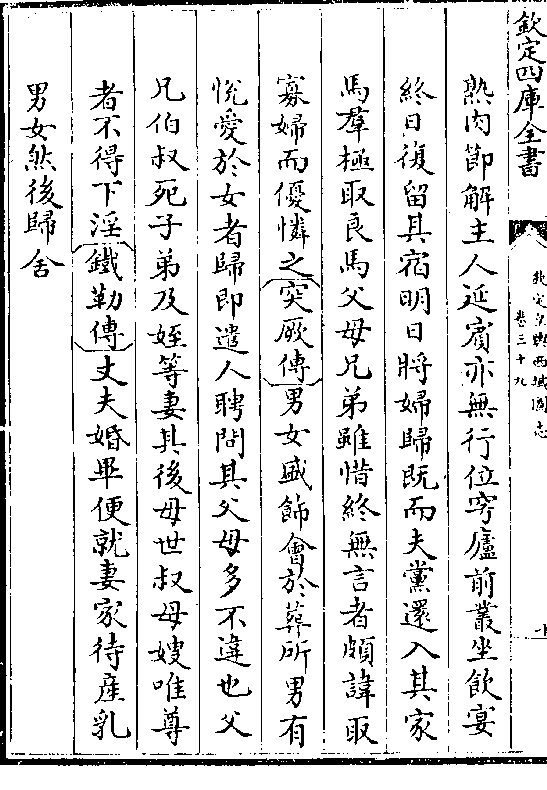 欽定四庫全書
欽定皇輿西域圖志
卷三十九
十
熟肉節解主人延賓亦無行位穹廬前叢坐飲宴
終日復留其宿明日將婦歸既而夫黨還入其家
馬羣極取良馬父母兄弟雖惜終無言者頗諱取
寡婦而優憐之(突厥傳)男女盛飾會於葬所男有
悅愛於女者歸即遣人聘問其父母多不違也父
兄伯叔死子弟及姪等妻其後母世叔母嫂唯尊
者不得下淫(鐵勒傳)丈夫婚畢便就妻家待產乳
男女然後歸舍